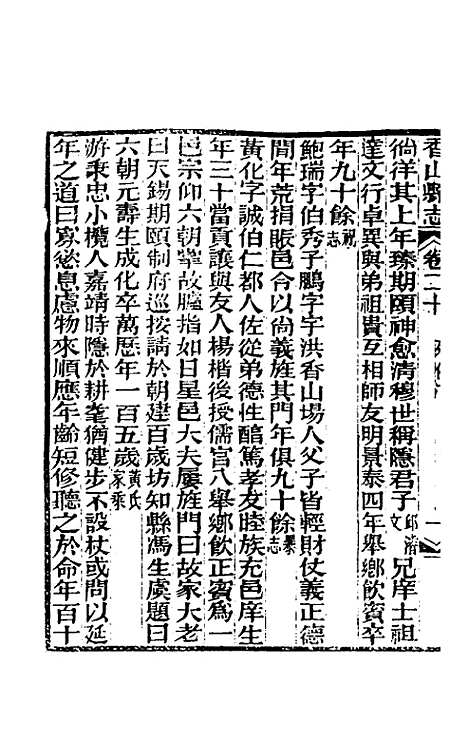 香山縣志 卷二十 一
徜徉其上年臻期頤神愈清穆世稱隱君子邱濬文兄庠士祖
達文行卓異與弟祖貴互相師友明景泰四年舉鄉飲賓卒
年九十餘祝志
鮑瑞字伯秀子鵬字宇洪香山場人父子皆輕財仗義正德
間年荒捐賑邑令以尚義旌其門年俱九十餘暴志
黃化字誠伯仁都人佐從弟德性醕篤孝友睦族充邑庠生
年三十當貢讓與友人楊楷後授儒官八舉鄉飲正賓為一
邑宗仰六朝舉故臚指如日星邑大夫屢旌門曰故家大老
曰天錫期頤制府巡按請於朝建百歲坊知縣馮生虞題曰
六朝元壽生成化卒萬歷年一百五歲黃氏家乘
游秉忠小欖人嘉靖時隱於耕耄猶健步不設杖或問以延
年之道曰寡慾息慮物來順應年齡短修聽之於命年百十